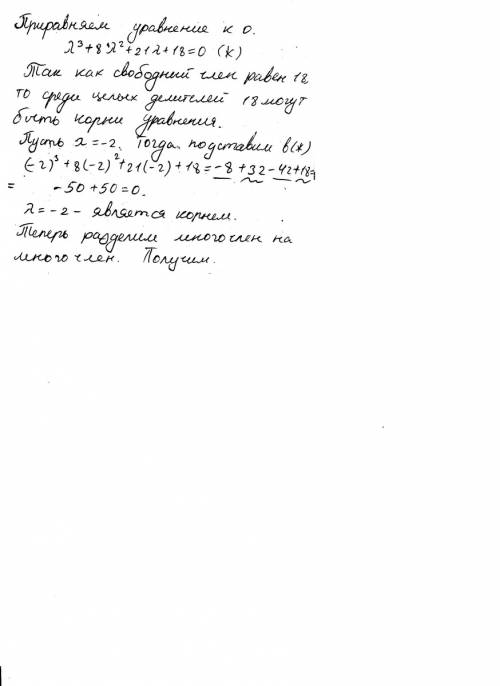 Приравняем уравнение к 0.
λ³+8λ²+21λ+18=0 (*)
Так как свободний член равен 18
то среди целых делителей 18 могут
быть корни уравнения.
Пусть λ=-2. Тогда подставим в(*)
(-2)³+8(-2)²+21(-2)+18=-8+32-42+18=
= -50+50=0.
λ=-2- является корнем.
Теперь разделим многочлен на
многочлен. Получим.